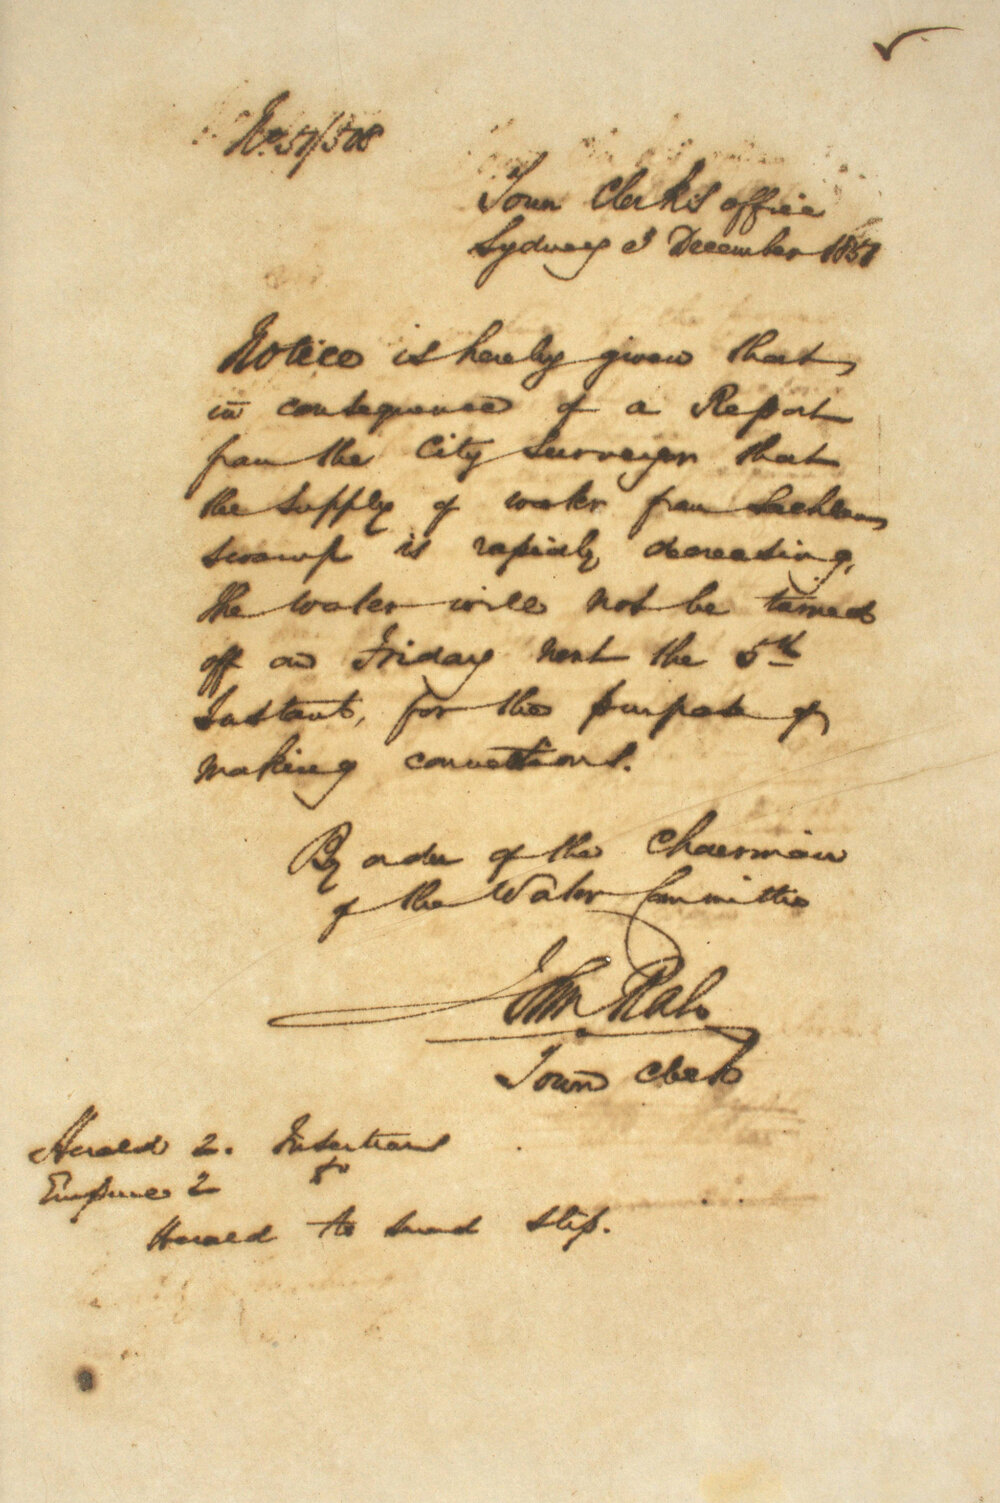 No. 51/508
Town Clerk's office
Sydney 3 December 1851
Notice is hereby given that
in consequence of a Report
from the City Surveyor that
the supply of water from Lachlan
swamp is rapidly decreasing,
the water will not be turned
off on Friday next the 5th
Instant, for the purpose of
making connections.
By order of the Chairman
of the Water Committee
John Rae
Town Clerk
Herald 2. Insertions
Empire 2 do
Herald to send slip.